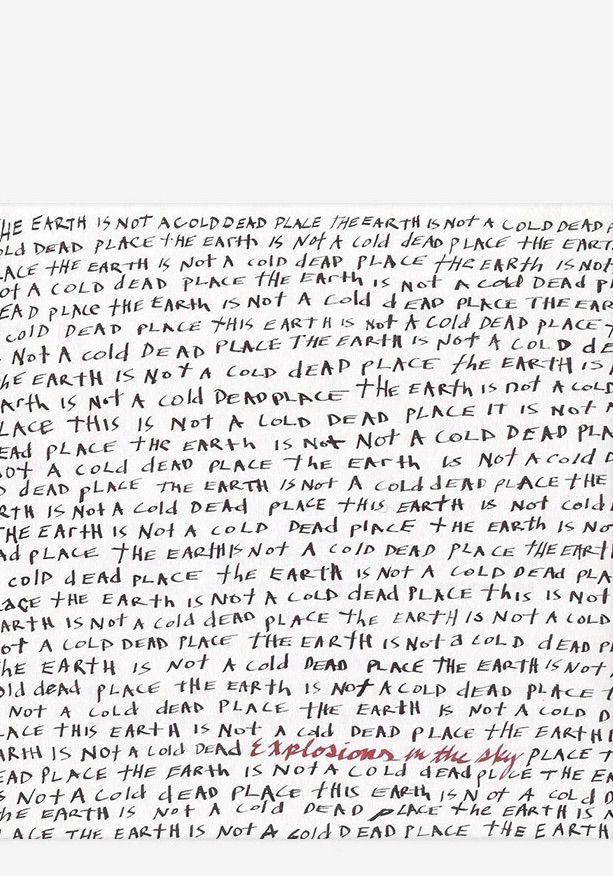 THE EARTH IS NOT A COLD DEAD PLACE THE EARTH IS NOT A COLD DEAD P
OLd DEAD PLACE tHE EArth IS Not A Cold deAD PLACE tHE EART
LACE tHE EARTH IS Not A cold deAD PLACE tHE EARth IS NOT
ot A COLD dEAD PLACE tHE EArth is Not A cold DEAd Pl
EAD PlACe tHE EARth IS NOT A Cold dEAD PLACE THE EAR
cOlD DEAD PLACE tHIS EARTH IS Not A Cold DEAD PLACE T
Not A cold DEAD PLACE THE EARtH IS NOT A COLD dE
hE EARTH IS NoT A COLD dEAD PLACE tHE EARtH IS
Arth IS Not A cold DEAD PLACE tHE EARth is not A cOLD
LACE THIS IS NOT A COLD DEAD PLACE IT IS NOT A
EAd PLACE tHE EARth IS Not Not A COLD DEAD PLA
ot A COld dEAD PLACE The EArth Is Not A cold D
D dEAD pLACE THE EARTH IS Not A Cold deAD PLACE tHE
RTH IS Not A Cold DEAd PLACE tHIS EARtH IS Not cold
THE EArtH IS Not A COLD DEAd plACE tHE EARtH IS No
Ad PLACE tHE EARtH IS Not A COld DEAD PLACE tHE EARtH
cOlD dEAd PLACE the EARTh IS Not A COLD DEAd PLA
lace tHE EARth IS Not A Cold dEAd PLACE this IS Not
ARTH IS Not A cold deAD PLACE the EARTH IS Not A COLD
ot A COLD DEAD PLACE tHE EARTH IS Not a cOLD dEAD PL
hE EARTH IS Not A Cold DEAD PLACE THE EARTH IS Not
old deAd PLACE tHE EARth IS Not A COLD dEAD PLACE T
Not A cold dEAD PLACE tHE EARtH IS Not A COLD D
LACE THIS EARtH IS Not A cold DEAD PLACE tHE EARtH I
ARTH IS Not A Cold DEAD Explosions in the sky PLACE T
EAD PLACE tHE EARtH IS Not A COLd deAd pLaCE THE EA
S Not A Cold dEAD PLACE tHIS EARth IS Not A cold D
hE EARtH IS Not A Cold DEAD PLACE the EARtH IS N
LACE THE EARTH IS Not A Cold DEAD PLACE tHE EARTH